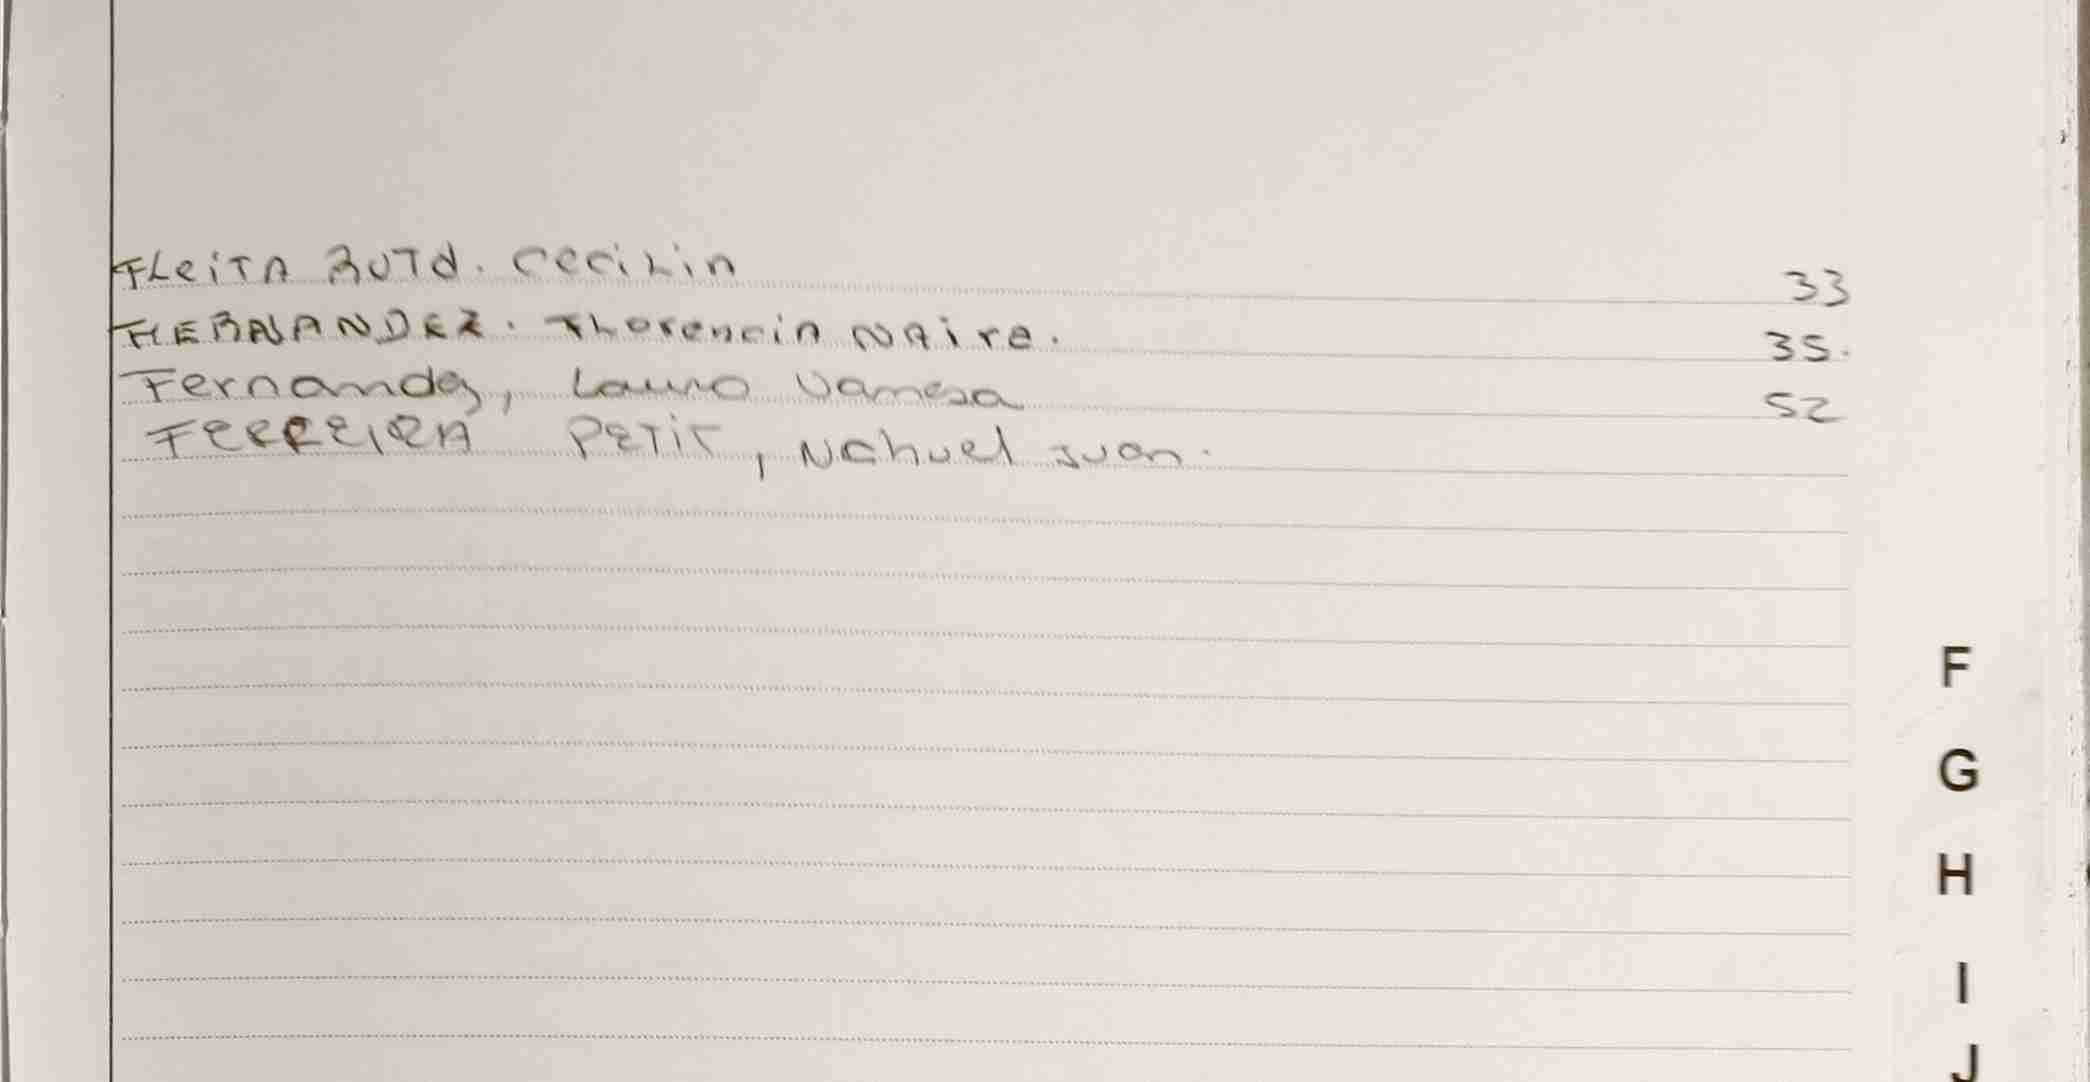 FLeiTA RUTd. CeciLia
FERNANDEZ. FLorencia NAire.
Fernandez, Laura Vanesa
FERREIRA PETIT, Nahuel Juan.
33
35.
52
F
G
H
I
J